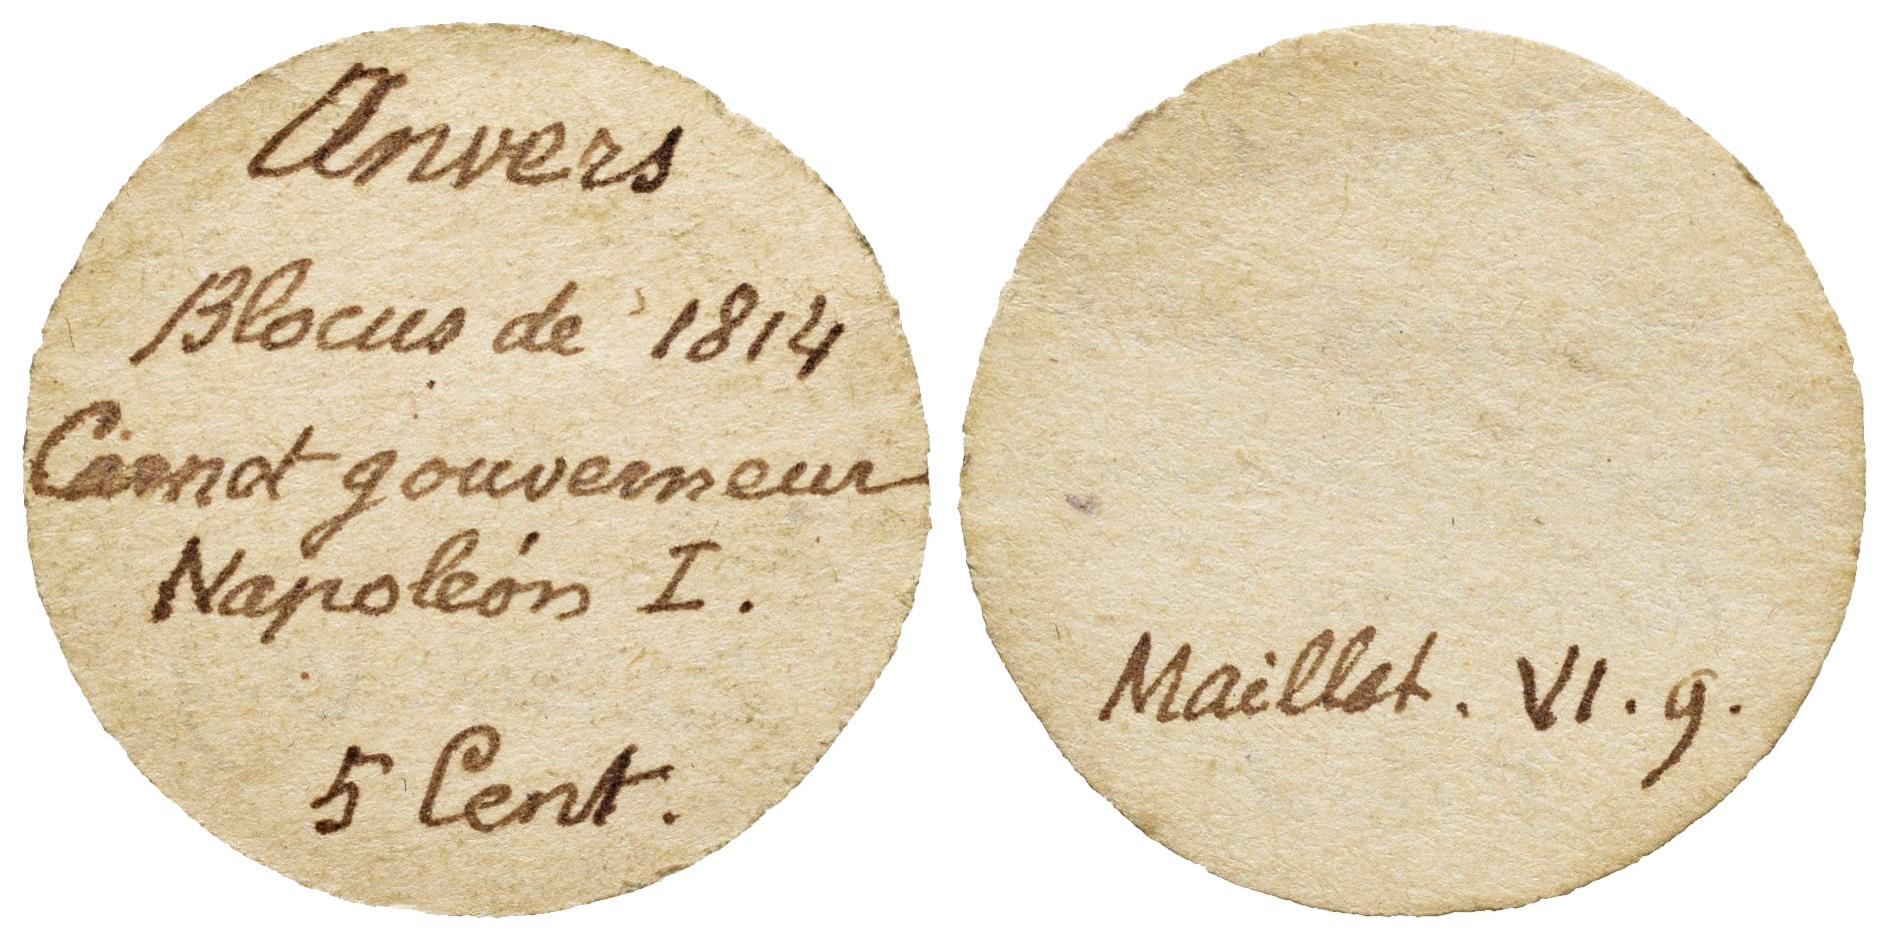 Anvers
Blocus de 1814
Carnot gouverneur
Napoléon I.
5 Cent.
Maillet. VI. 9.